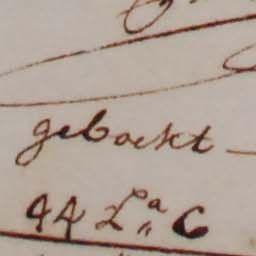 geboekt
44 La C